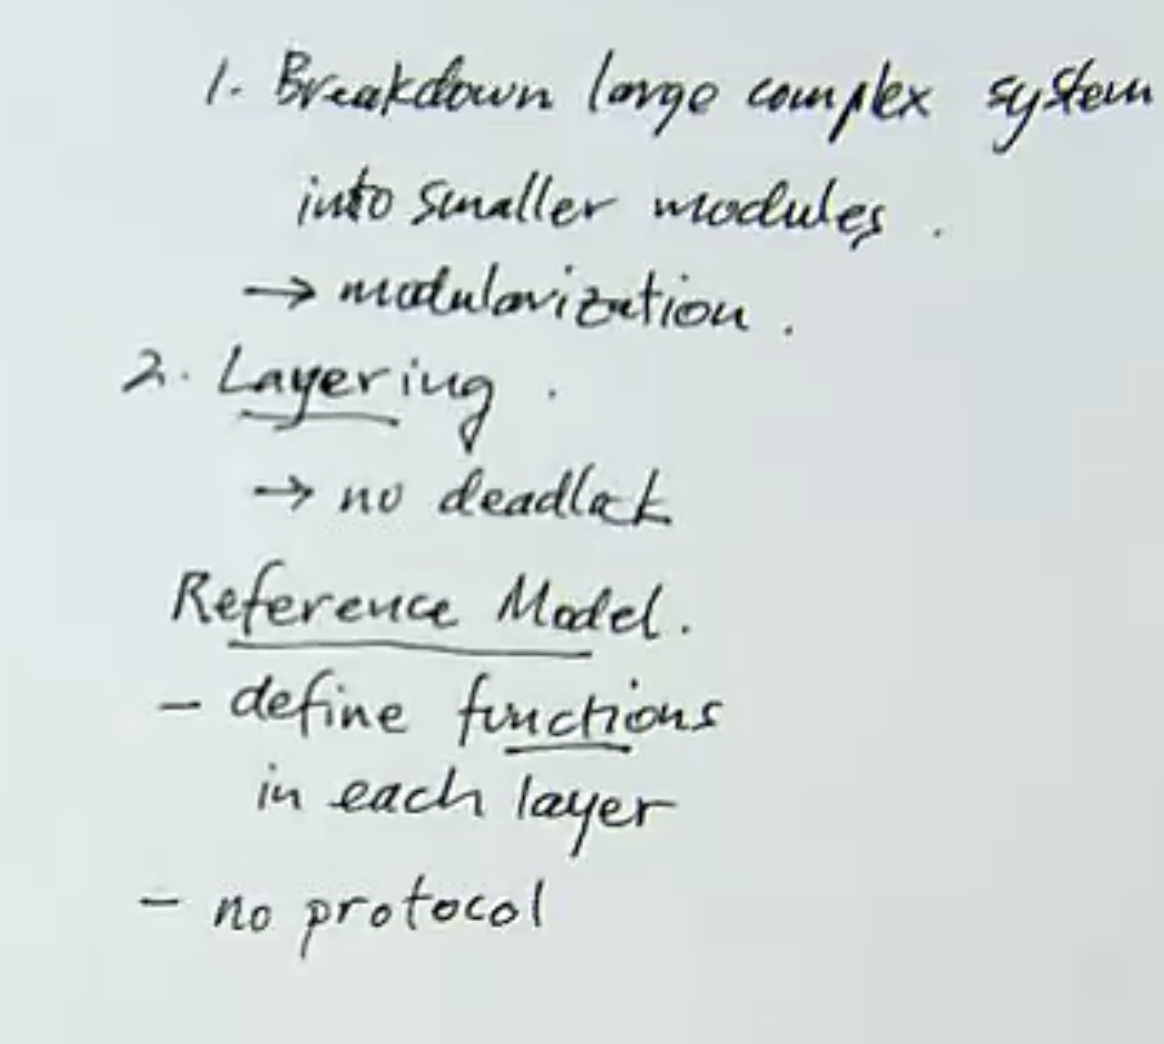 1. Breakdown large complex system
into smaller modules.
→ modularization.
2. Layering.
→ no deadlock
Reference Model.
- define functions
in each layer
- no protocol